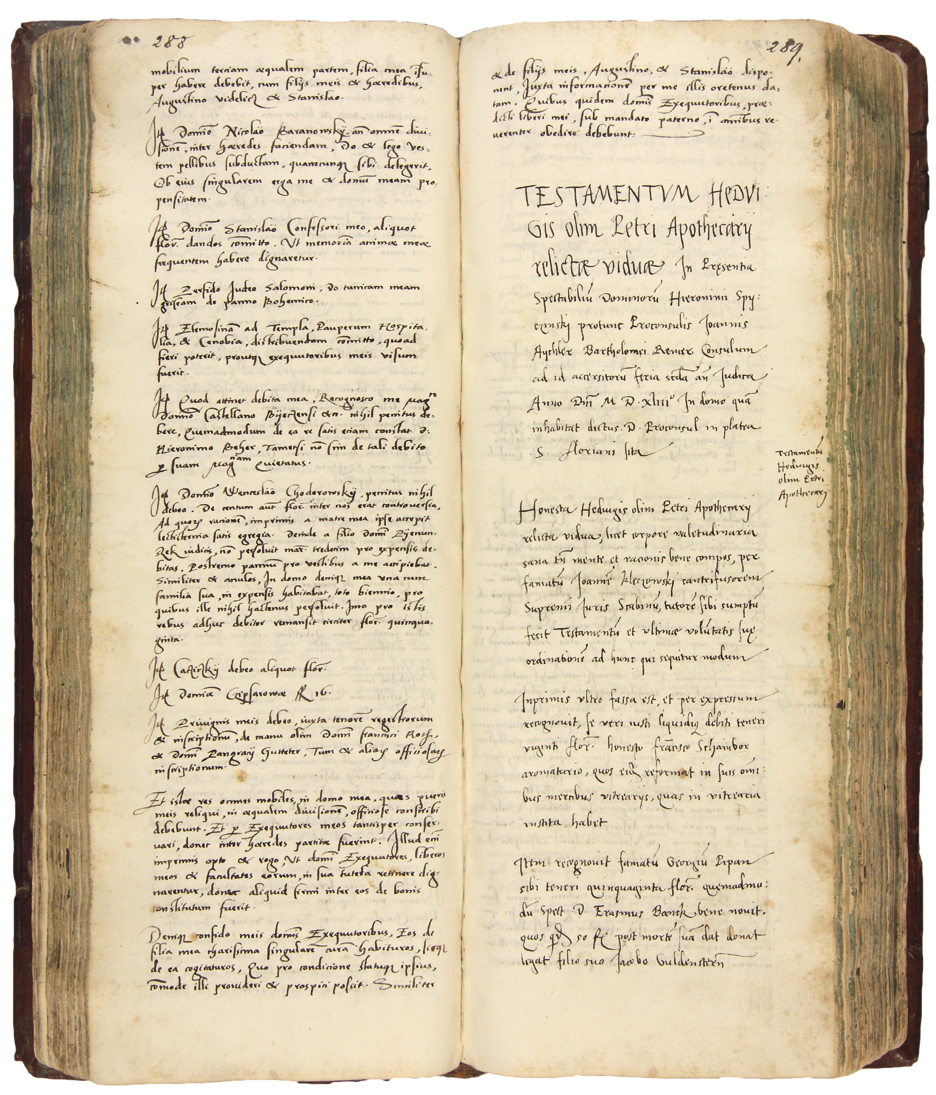 288
mobilium terciam æqualem partem, filia mea insu-
per habere debebit, cum filijs meis & hæredibus,
Augustino videlicet & Stanislao.
Itē Domino Nicolao Baranowskÿ, an̄ omnē divi-
sionē, inter hæredes faciendam, Do & lego ves-
tem pellibus subductam, quamcunq̨ sibi delegerit,
Ob eius singularem erga me & domū meam pro-
pensitatem.
Itē Domino Stanislao Confessori meo, aliquot
flor. dandos cōmitto. Ut memoriā animæ meæ
frequentem habere dignaretur.
Itē Zerfido Judeo Salomoni, do tunicam meam
griseam de panno Bohemico.
Itē Elemosinā ad Templa, Pauperum Hospita-
lia, & Cenobia, distribuendam cōmitto, quoad
fieri poterit, proutq̨ exequutoribus meis visum
fuerit.
Itē Quod attinet debita mea, Recognosco me Mag^co
Domino Castellano Bijeczensi &c. nihil penitus de-
bere, Quemadmodum de ea re satis etiam constat D.
Hieronimo Beher, Tametsi nō sim de tali debito
p suam Mag^ciam Quietatus.
Itē Domino Wenceslao Chodorowskÿ, penitus nihil
debeo. De centum aut flor. inter nos erat controversia,
Ad quorū racionē, imprimis a matre mea ipse accepit
lectisternia satis egregia. Deinde a filio Domini
vidius, nō persoluit mar. tredecim pro expensis de-
bitas. Postremo pannū pro vestibus a me accipiebat.
Similiter & anulos, In domo deniq̨ mea una cum
familia sua, in expensis habitabat, toto biennio, pro
quibus ille nihil hactenus persoluit. Imo pro istis
rebus adhuc debitor remansit circiter flor. quinqua-
ginta.
Itē debeo aliquot flor.
Itē Dominæ 16.
Itē Priuignis meis debeo, iuxta tenorē regestrorum
& inscriptionū, de manu olim Domini Francisci
& Domini Pangracij Gutteter, Tum & alias officiosas
inscriptionum.
Et istæ res omnes mobiles, in domo mea, quas pueris
meis reliqui, in æqualem diuisionē, officiose conscribi
debebunt. Et p Exequutores meos tantisper conser-
vari, donec inter hæredes partitæ fuerint. Illud em̄
imprimis opto & rogo, Ut domini Exequutores, liberos
meos & facultates eorum, in sua tutela retinere dig-
narentur, donec aliquid firmi inter eos de bonis
constitutum fuerit.
Deniq̨ confido meis dominis Exequutoribus, Eos de
filia mea charissima singularē curā habituros, sicq̨
de ea cogitaturos, Quo pro condicione statuq̨ ipsius,
cōmode illi provideri & prospici possit. Similiter
289.
& de filijs meis, Augustino, & Stanislao dispo-
nent, Juxta informationē per me illis oretenus da-
tam. Quibus quidem dominis Exequutoribus, præ-
dicti liberi mei, sub mandato paterno, ī omnibus re-
uerenter obedire debebunt.
TESTAMENTVM HEDVI:
Gis olim Petri Apothecarÿ
relictæ viduæ In Presentia
Spectabiliū Dominorū Hieronimi Spy:
czinskj protunc Proconsulis Joannis
Aychler Bartholomei Remer Consulum
ad id accersitorū feria scdā an̄ Judica
Anno Dnī M D XLIII° In domo quā
inhabitat dictus D. Proconsul in platea
S. Floriani sita
Testamentū
Hedvigis
olim Petri
Apothecarÿ
Honesta Hedvigis olim Petri Apothecarÿ
relicta vidua, licet corpore valetudinaria
sana tn̄ mente et racionis bene compos, per
famatū Joannē Kleczowskj cantrifusorem
Supremi Juris Scabinū, tutorē sibi sumptū
fecit Testamentū et ultimæ volūtatis suæ
ordinationē ad hunc qui sequitur modum
Inprimis ultro fassa est, et per expressum
recognouit, se veri iusti liquidiq̨ debiti teneri
viginti flor. honesto Francisco Schambor
aromatario, quos eidē reformat in suis omi:
bus mercibus vitrearijs, quas in vitrearia
institā habet
Item recognouit famatū Georgiū Pipan
sibi teneri quinquaginta flor. quemadmo:
dū Spect. D. Erasmus Banek bene nouit.
quos qdē 50 fl post mortē suā dat donat
legat filio suo Jacobo Guldenstern